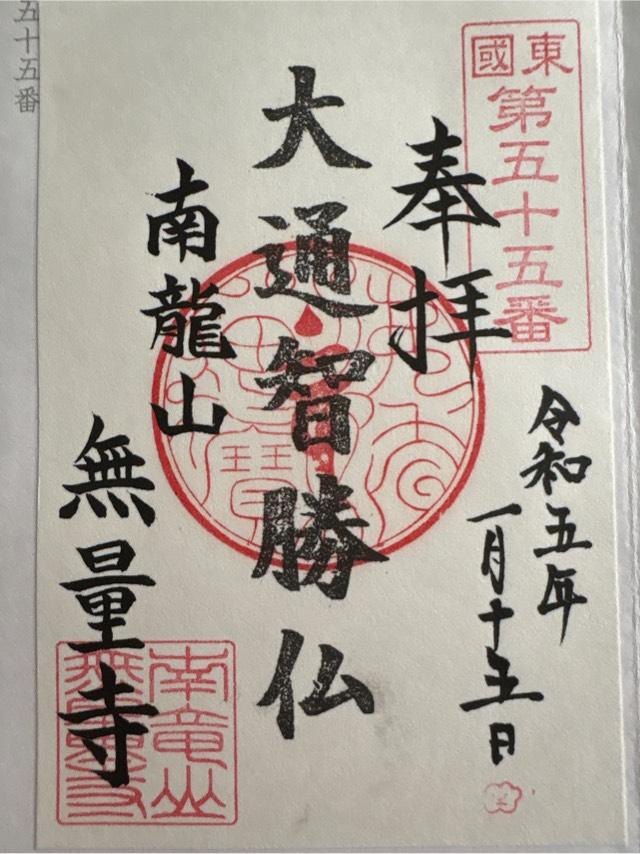 東國
第五十五番
奉拝
令和五年
一月十五日
大通智勝仏
南龍山
無量寺
南竜山
無量寿寺
五十五番